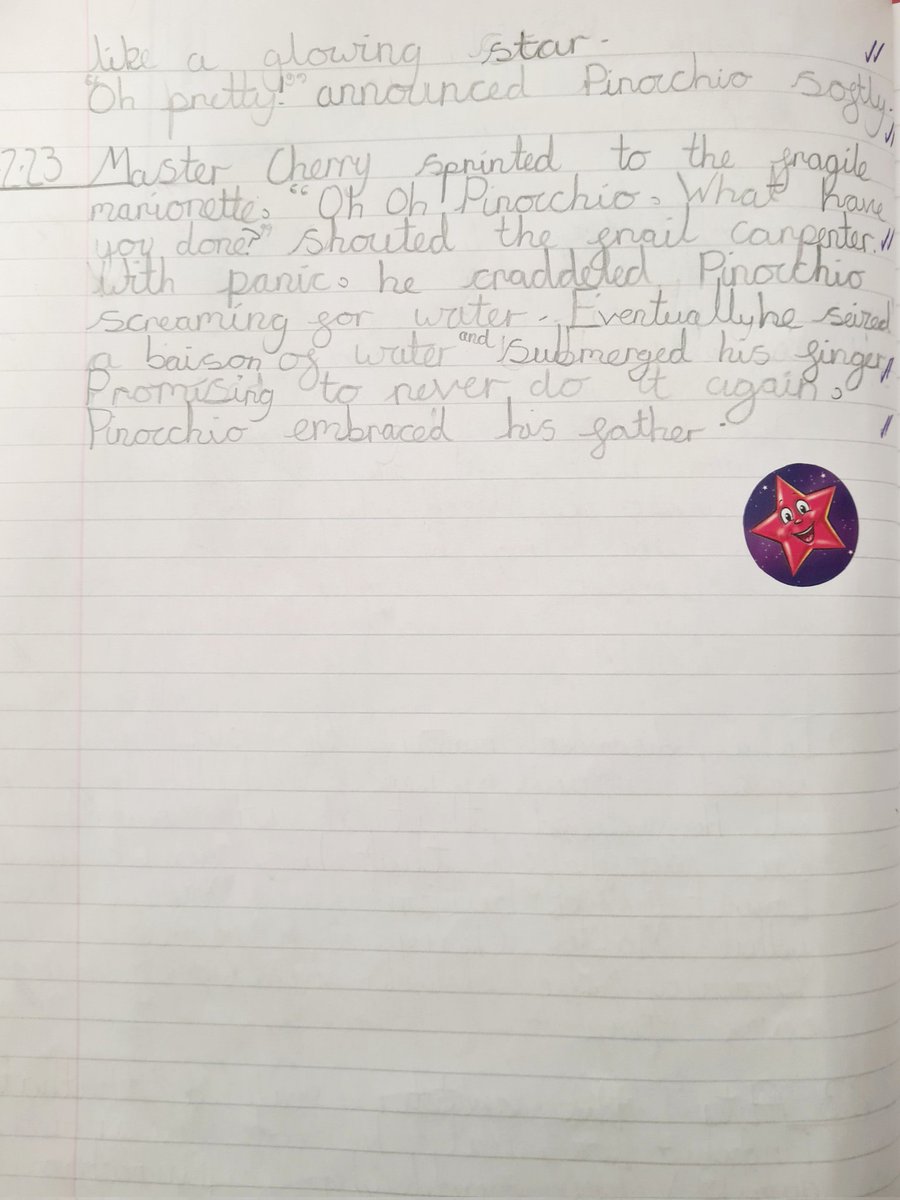 like a glowing star.
"Oh pretty!" announced Pinocchio softly.
2.23 Master Cherry sprinted to the fragile
marionette. "Oh Oh! Pinocchio. What have
you done?" shouted the frail carpenter.
With panic. he craddeled Pinocchio
screaming for water. Eventually he seized
a baison of water and submerged his finger
Promising to never do it again.
Pinocchio embraced his father.